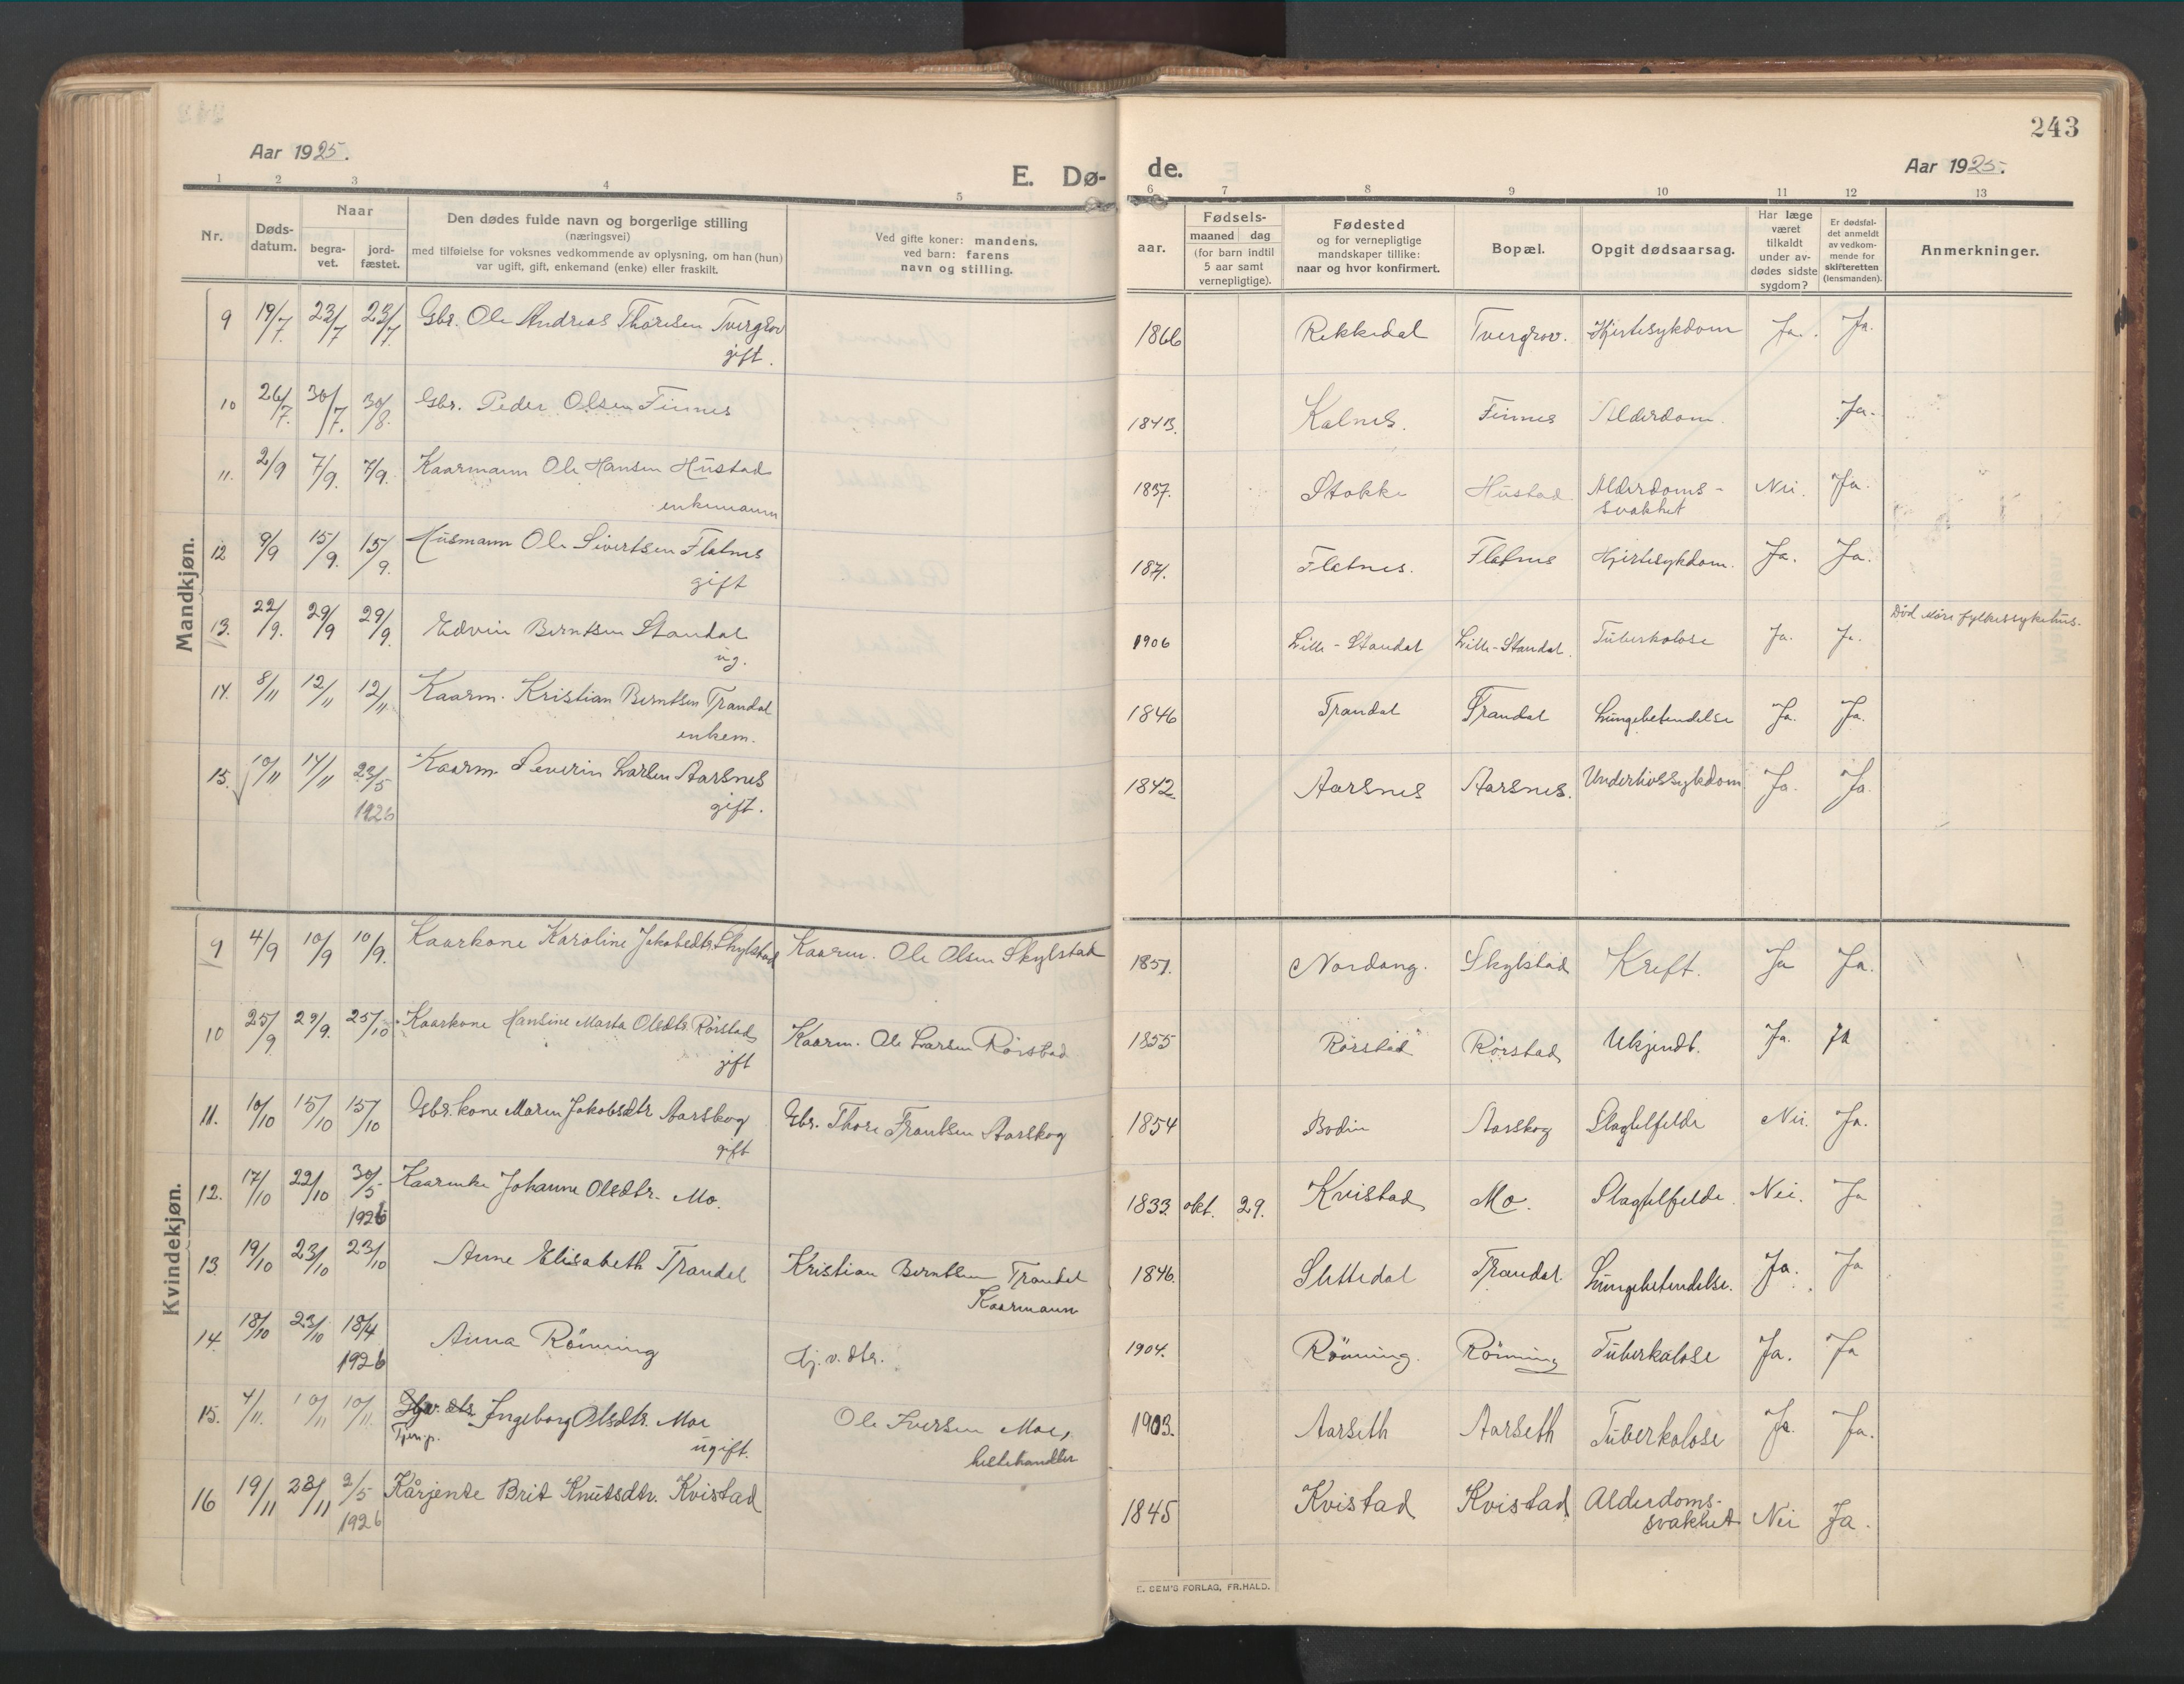 243
Aar 1925.
E. Dø-
de.
Aar 1925.
1 2 3 4 5 6 7 8 9 10 11 12 13
Nr.
Døds-
datum.
Naar
begra-
vet.
jord-
fæstet.
Den dødes fulde navn og borgerlige stilling
(næringsvei)
med tilføielse for voksnes vedkommende av oplysning, om han (hun)
var ugift, gift, enkemand (enke) eller fraskilt.
Ved gifte koner: mandens.
ved barn: farens
navn og stilling.
aar.
Fødsels-
maaned dag
(for barn indtil
5 aar samt
vernepligtige).
Fødested
og for vernepligtige
mandskaper tillike:
naar og hvor konfirmert.
Bopæl.
Opgit dødsaarsag.
Har læge
været
tilkaldt
under av-
dødes sidste
sygdom?
Er dødsfal-
det anmeldt
av vedkom-
mende for
skifteretten
(lensmanden).
Anmerkninger.
Mandkjøn.
9 19/7. 23/7 23/7. Gbr. Ole Andreas Thoresen Tvergrov 1866 Rekkedal Tvergrov. Hjertesykdom Ja. Ja.
gift.
10 26/7. 30/7. 30/8. Gbr. Peder Olsen Finnes 1843. Kalnes. Finnes Alderdom. Ja.
11. 2/9 7/9. 7/9. Kaarmann Ole Hansen Hustad 1837. Stokke Hustad Alderdoms- Nei. Ja.
enkemann svakhet
12 9/9 15/9. 15/9. Husmann Ole Sivertsen Flatnes 1871. Flatnes. Flatnes Hjertesykdom. Ja. Ja.
gift
13. 22/9. 29/9 29/9. Edvin Berntsen Standal 1906 Lille-Standal Lille-Standal. Tuberkolose Ja. Ja. Död Möre fylkessykehus.
ug.
14. 8/11 12/11 12/11 Kaarm. Kristian Berntsen Trandal 1846 Trandal Trandal Lungebetendelse Ja. Ja.
enkem.
15. 10/11 14/11 23/5 Kaarm. Severin Larsen Aarsnes 1842. Aarsnes Aarsnes. Underlivssykdom Ja. Ja.
1926 gift.
Kvindekjøn.
9 4/9 10/9 10/9. Kaarkone Karoline Jakobsdtr. Skylstad Kaarm. Ole Olsen Skylstad 1851. Nordang. Skylstad Kreft. Ja Ja.
10 25/9 29/9. 25/10 Kaarkone Hansine Marta Olsdtr. Rörstad Kaarm. Ole Larsen Rörstad 1855 Rörstad Rörstad Ukjendt. Ja. Ja
gift
11. 10/10 15/10 15/10 Gbr.kone Maren Jakobsdtr Aarskog Gbr. Thore Frantsen Aarskog 1854 Bodin Aarskog Slagtilfelde Nei. Ja.
gift
12. 17/10 22/10 30/5 Kaarenke Johanne Olsdtr. Mo. 1833. okt. 29. Kvistad Mo. Slagtilfelde. Nei. Ja
1926
13. 19/10 23/10 23/10 Anne Elisabeth Trandal Kristian Berntsen Trandal 1846. Slettedal Trandal. Lungebetendelse. Ja. Ja
Kaarmann
14. 18/10 23/10 18/4 Anna Rönning Gj.v. dtr. 1904. Rönning. Rönning Tuberkolose Ja. Ja
1926
15. 4/11. 10/11 10/11. Ingeborg Olsdtr. Moe Ole Iversen Moe, 1903. Aarseth Aarseth Tuberkolose Ja. Ja.
Tjen.p. ugift. heste­handler
16 19/11 28/11 2/5 Kårjente Brit Knutsdtr. Kvistad 1845 Kvistad Kvistad Alderdoms- Nei Ja.
1926 svakhet
E. SEM'S FORLAG, FR.HALD.